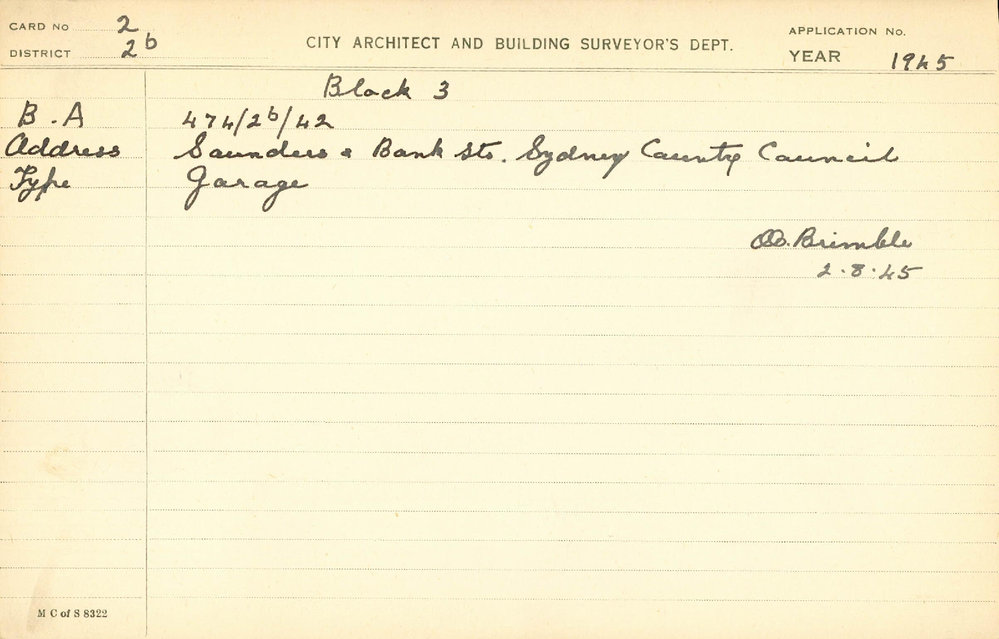 CARD No 2
DISTRICT 2b
CITY ARCHITECT AND BUILDING SURVEYOR'S DEPT.
APPLICATION No.
YEAR 1945
Block 3
B.A 474/2b/42
Address Saunders & Bank Sts. Sydney County Council
Type Garage
Brimble
2.8.45
M C of S 8322